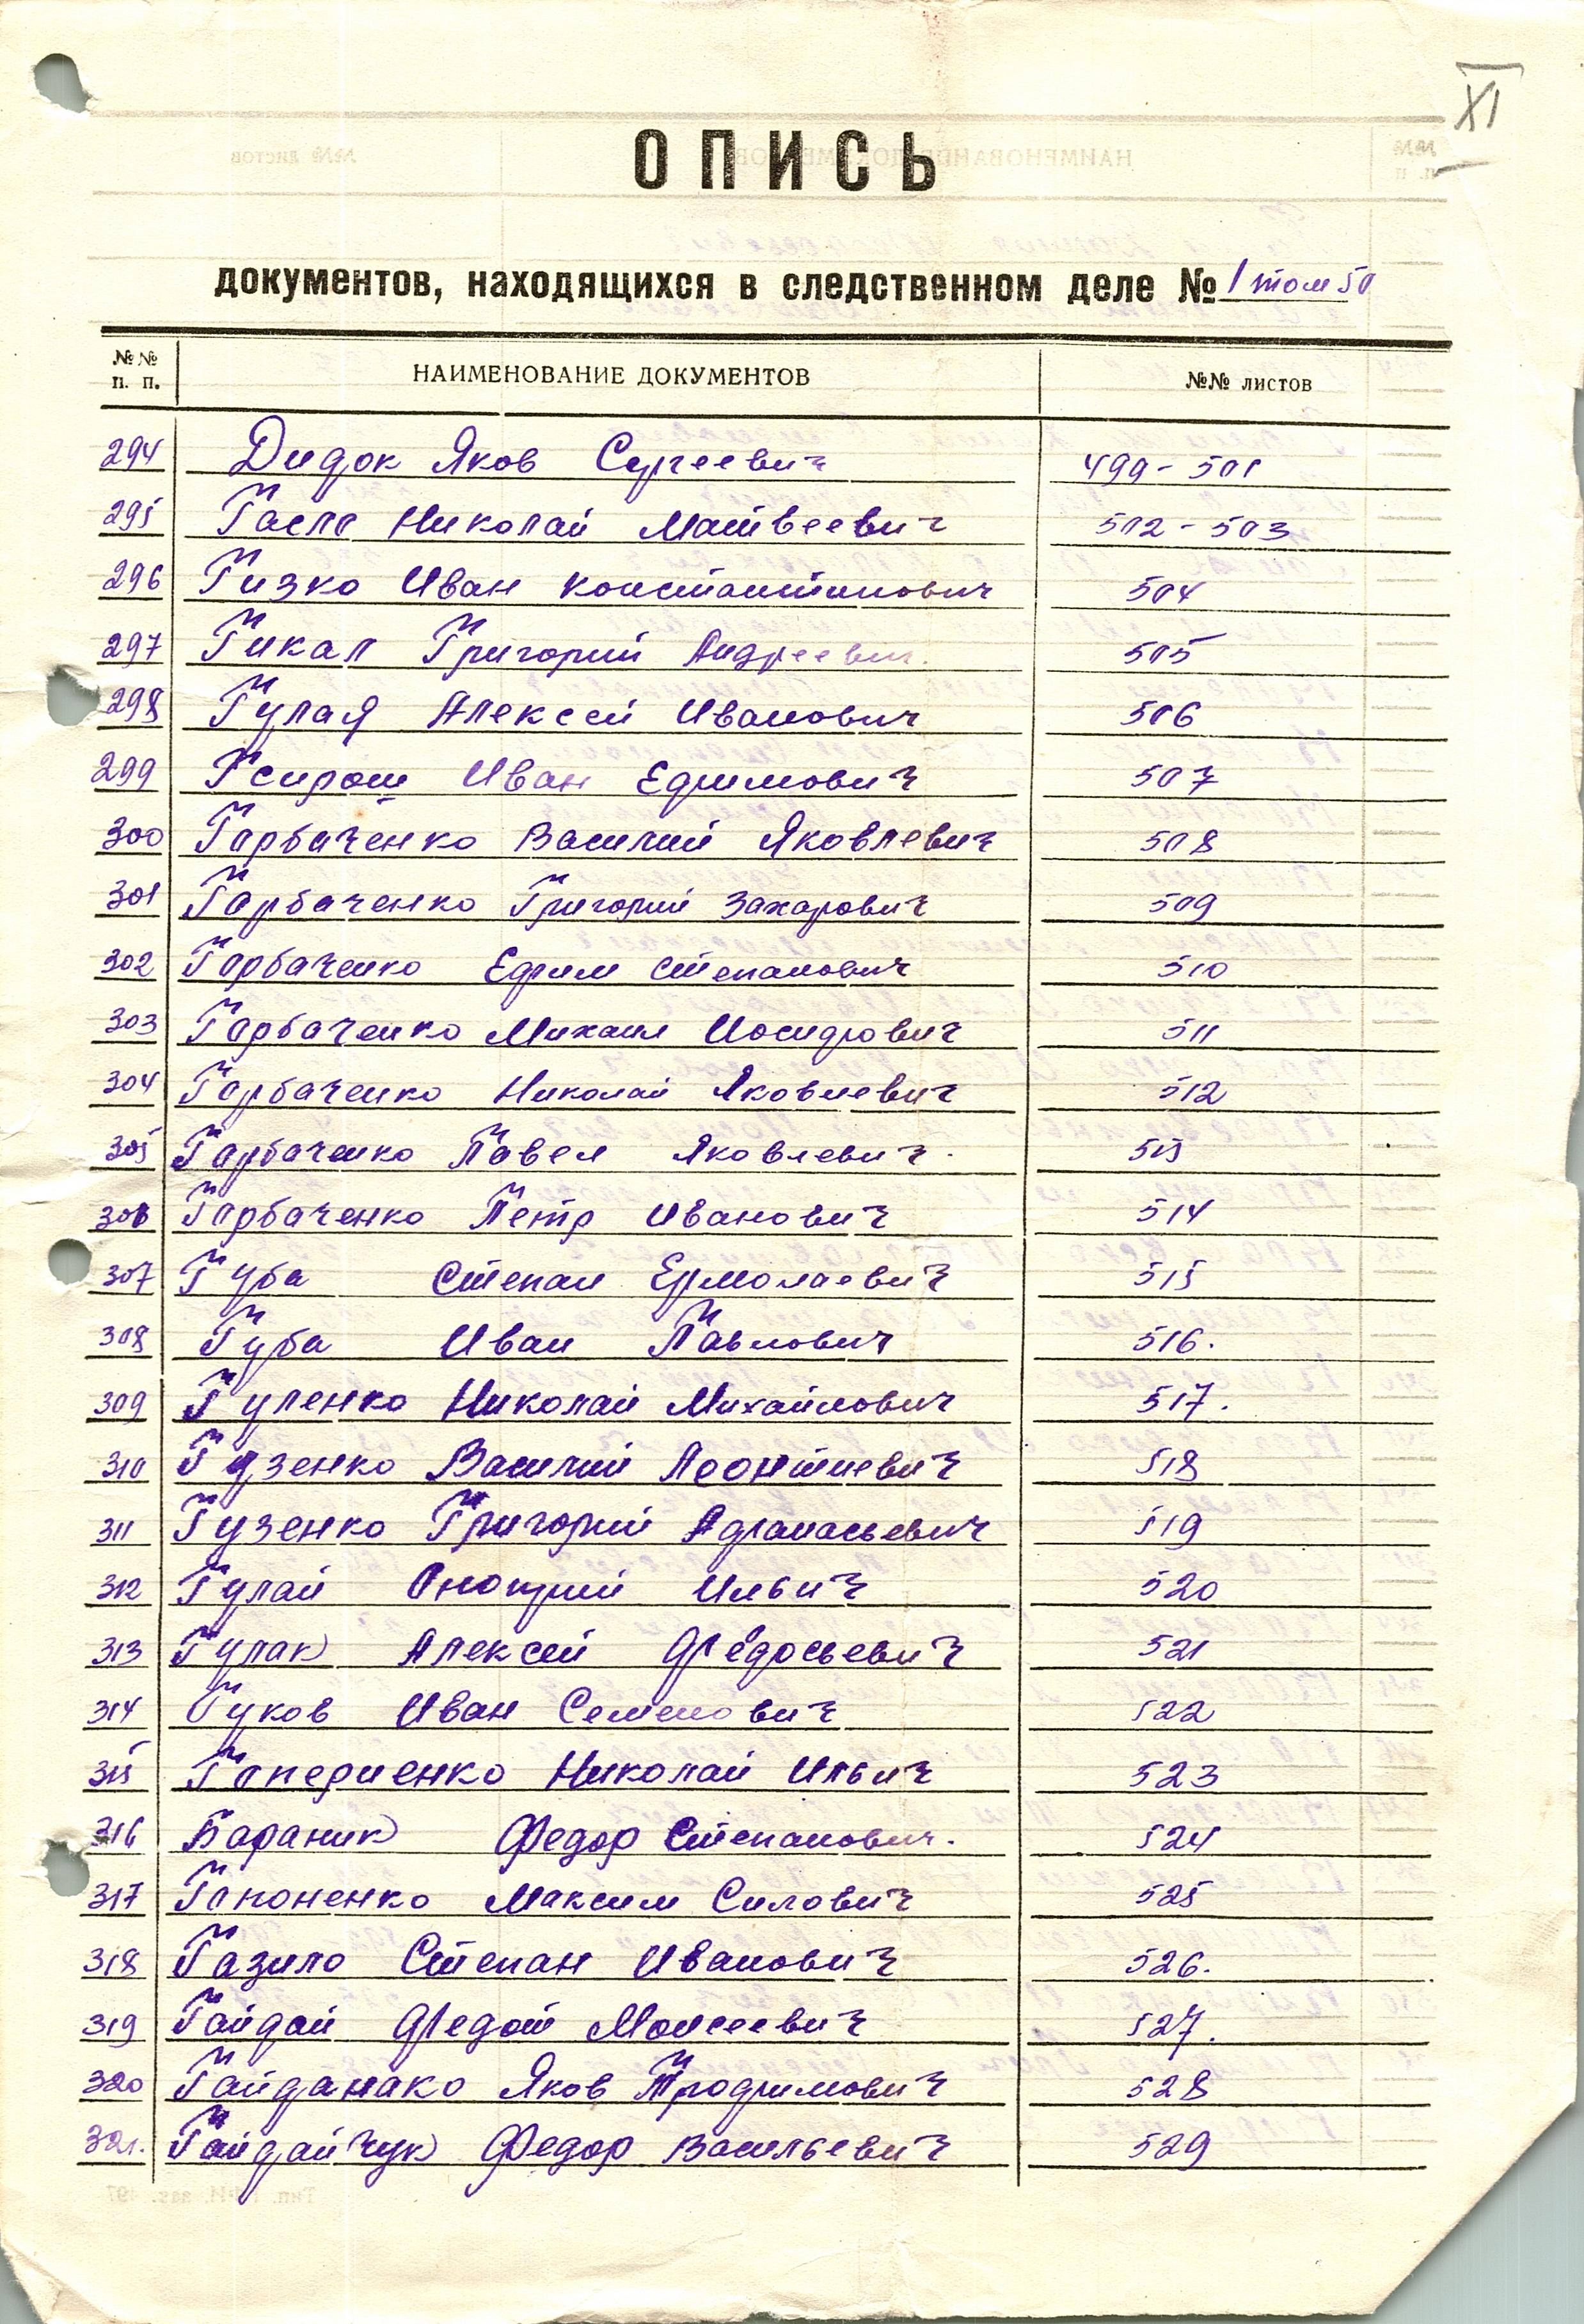 XI
ОПИСЬ
документов, находящихся в следственном деле № 1 том 50
№№ п. п. НАИМЕНОВАНИЕ ДОКУМЕНТОВ №№ листов
294 Дидок Яков Сергеевич 499-501
295 Гасло Николай Матвеевич 502-503
296 Гизко Иван Константинович 504
297 Гикал Григорий Андреевич. 505
298 Гулая Алексей Иванович 506
299 Иван Ефимович 507
300 Гарбаченко Василий Яковлевич 508
301 Гарбаченко Григорий Захарович 509
302 Гарбаченко Ефим Степанович 510
303 Гарбаченко Михаил Иосифович 511
304 Гарбаченко Николай Яковлевич 512
305 Гарбаченко Павел Яковлевич. 513
306 Гарбаченко Петр Иванович 514
307 Губа Степан Ермолаевич 515
308 Губа Иван Павлович 516.
309 Гуленко Николай Михайлович 517.
310 Гузенко Василий Леонтиевич 518
311 Гузенко Григорий Афанасьевич 519
312 Гулай Онофрий Ильич 520
313 Гулак Алексей Федосьевич 521
314 Гуков Иван Семенович 522
315 Николай Ильич 523
316 Бараник Федор Степанович. 524
317 Гапоненко Максим Силович 525
318 Газило Степан Иванович 526.
319 Гайдай Федот Моисеевич 527.
320 Гайданако Яков Трофимович 528
321. Гайдайчук Федор Васильевич 529